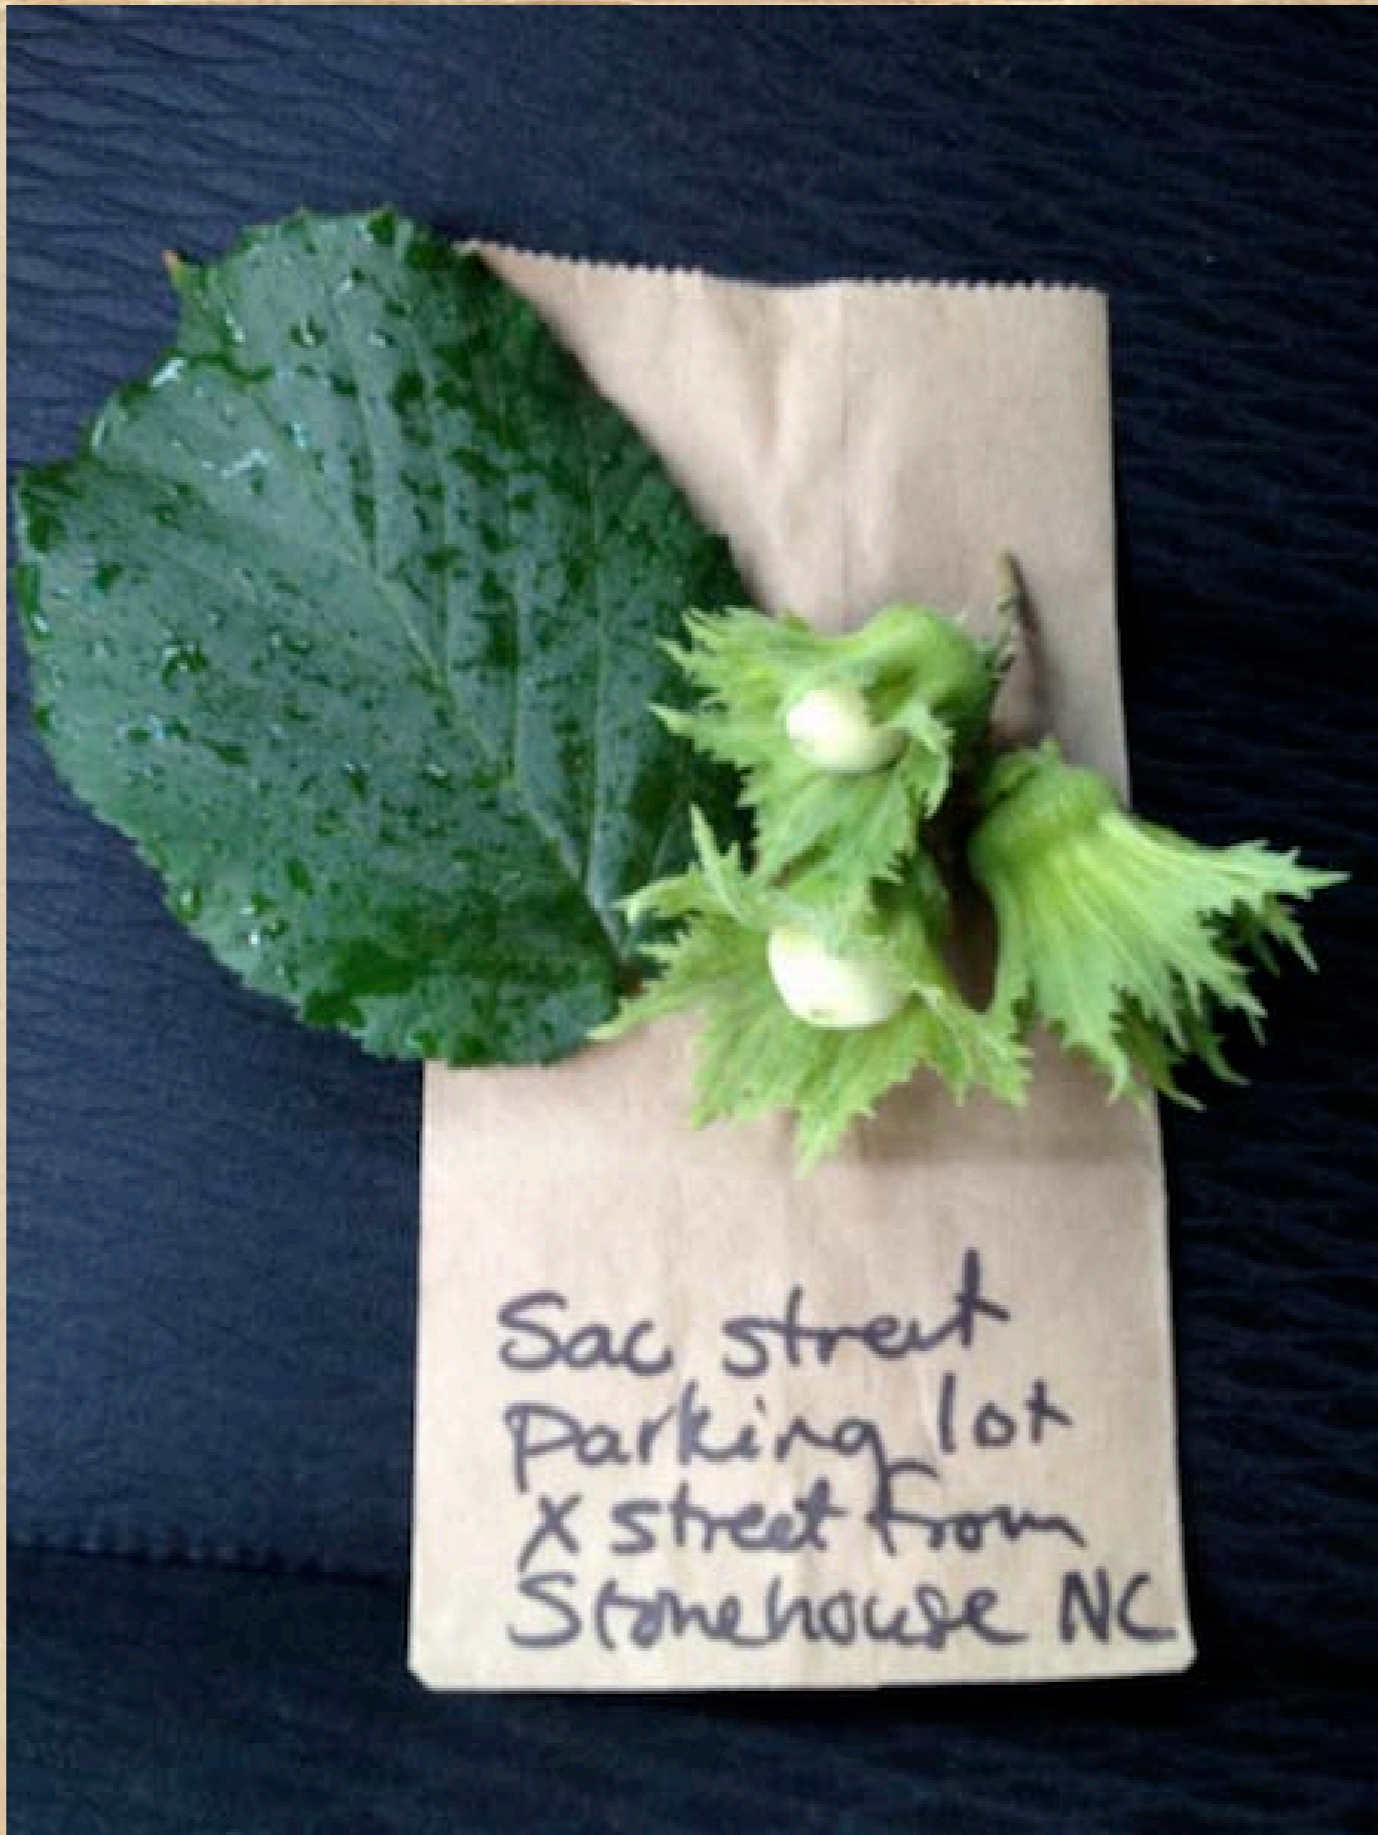 Sac street
parking lot
x street from
Stonehouse NC